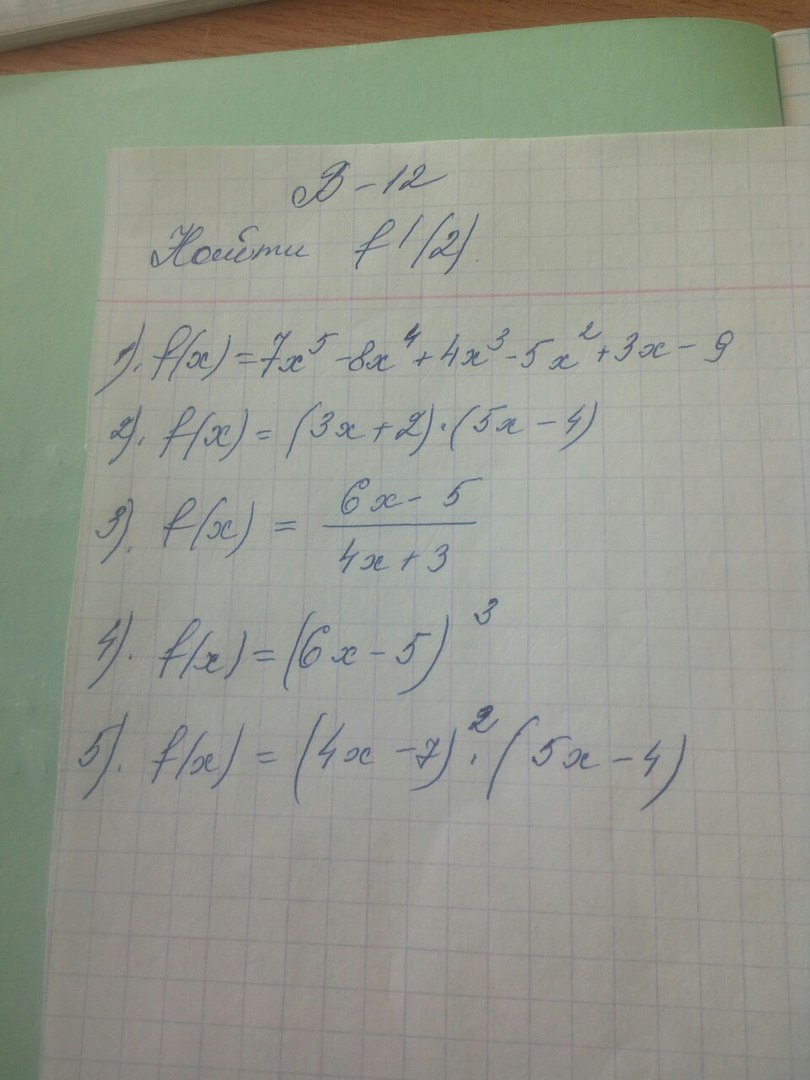 В-12
Найти f'(2).
1). f(x) = 7x⁵ - 8x⁴ + 4x³ - 5x² + 3x - 9
2). f(x) = (3x + 2)·(5x - 4)
3). f(x) = (6x - 5)/(4x + 3)
4). f(x) = (6x - 5)³
5). f(x) = (4x - 7)²·(5x - 4)